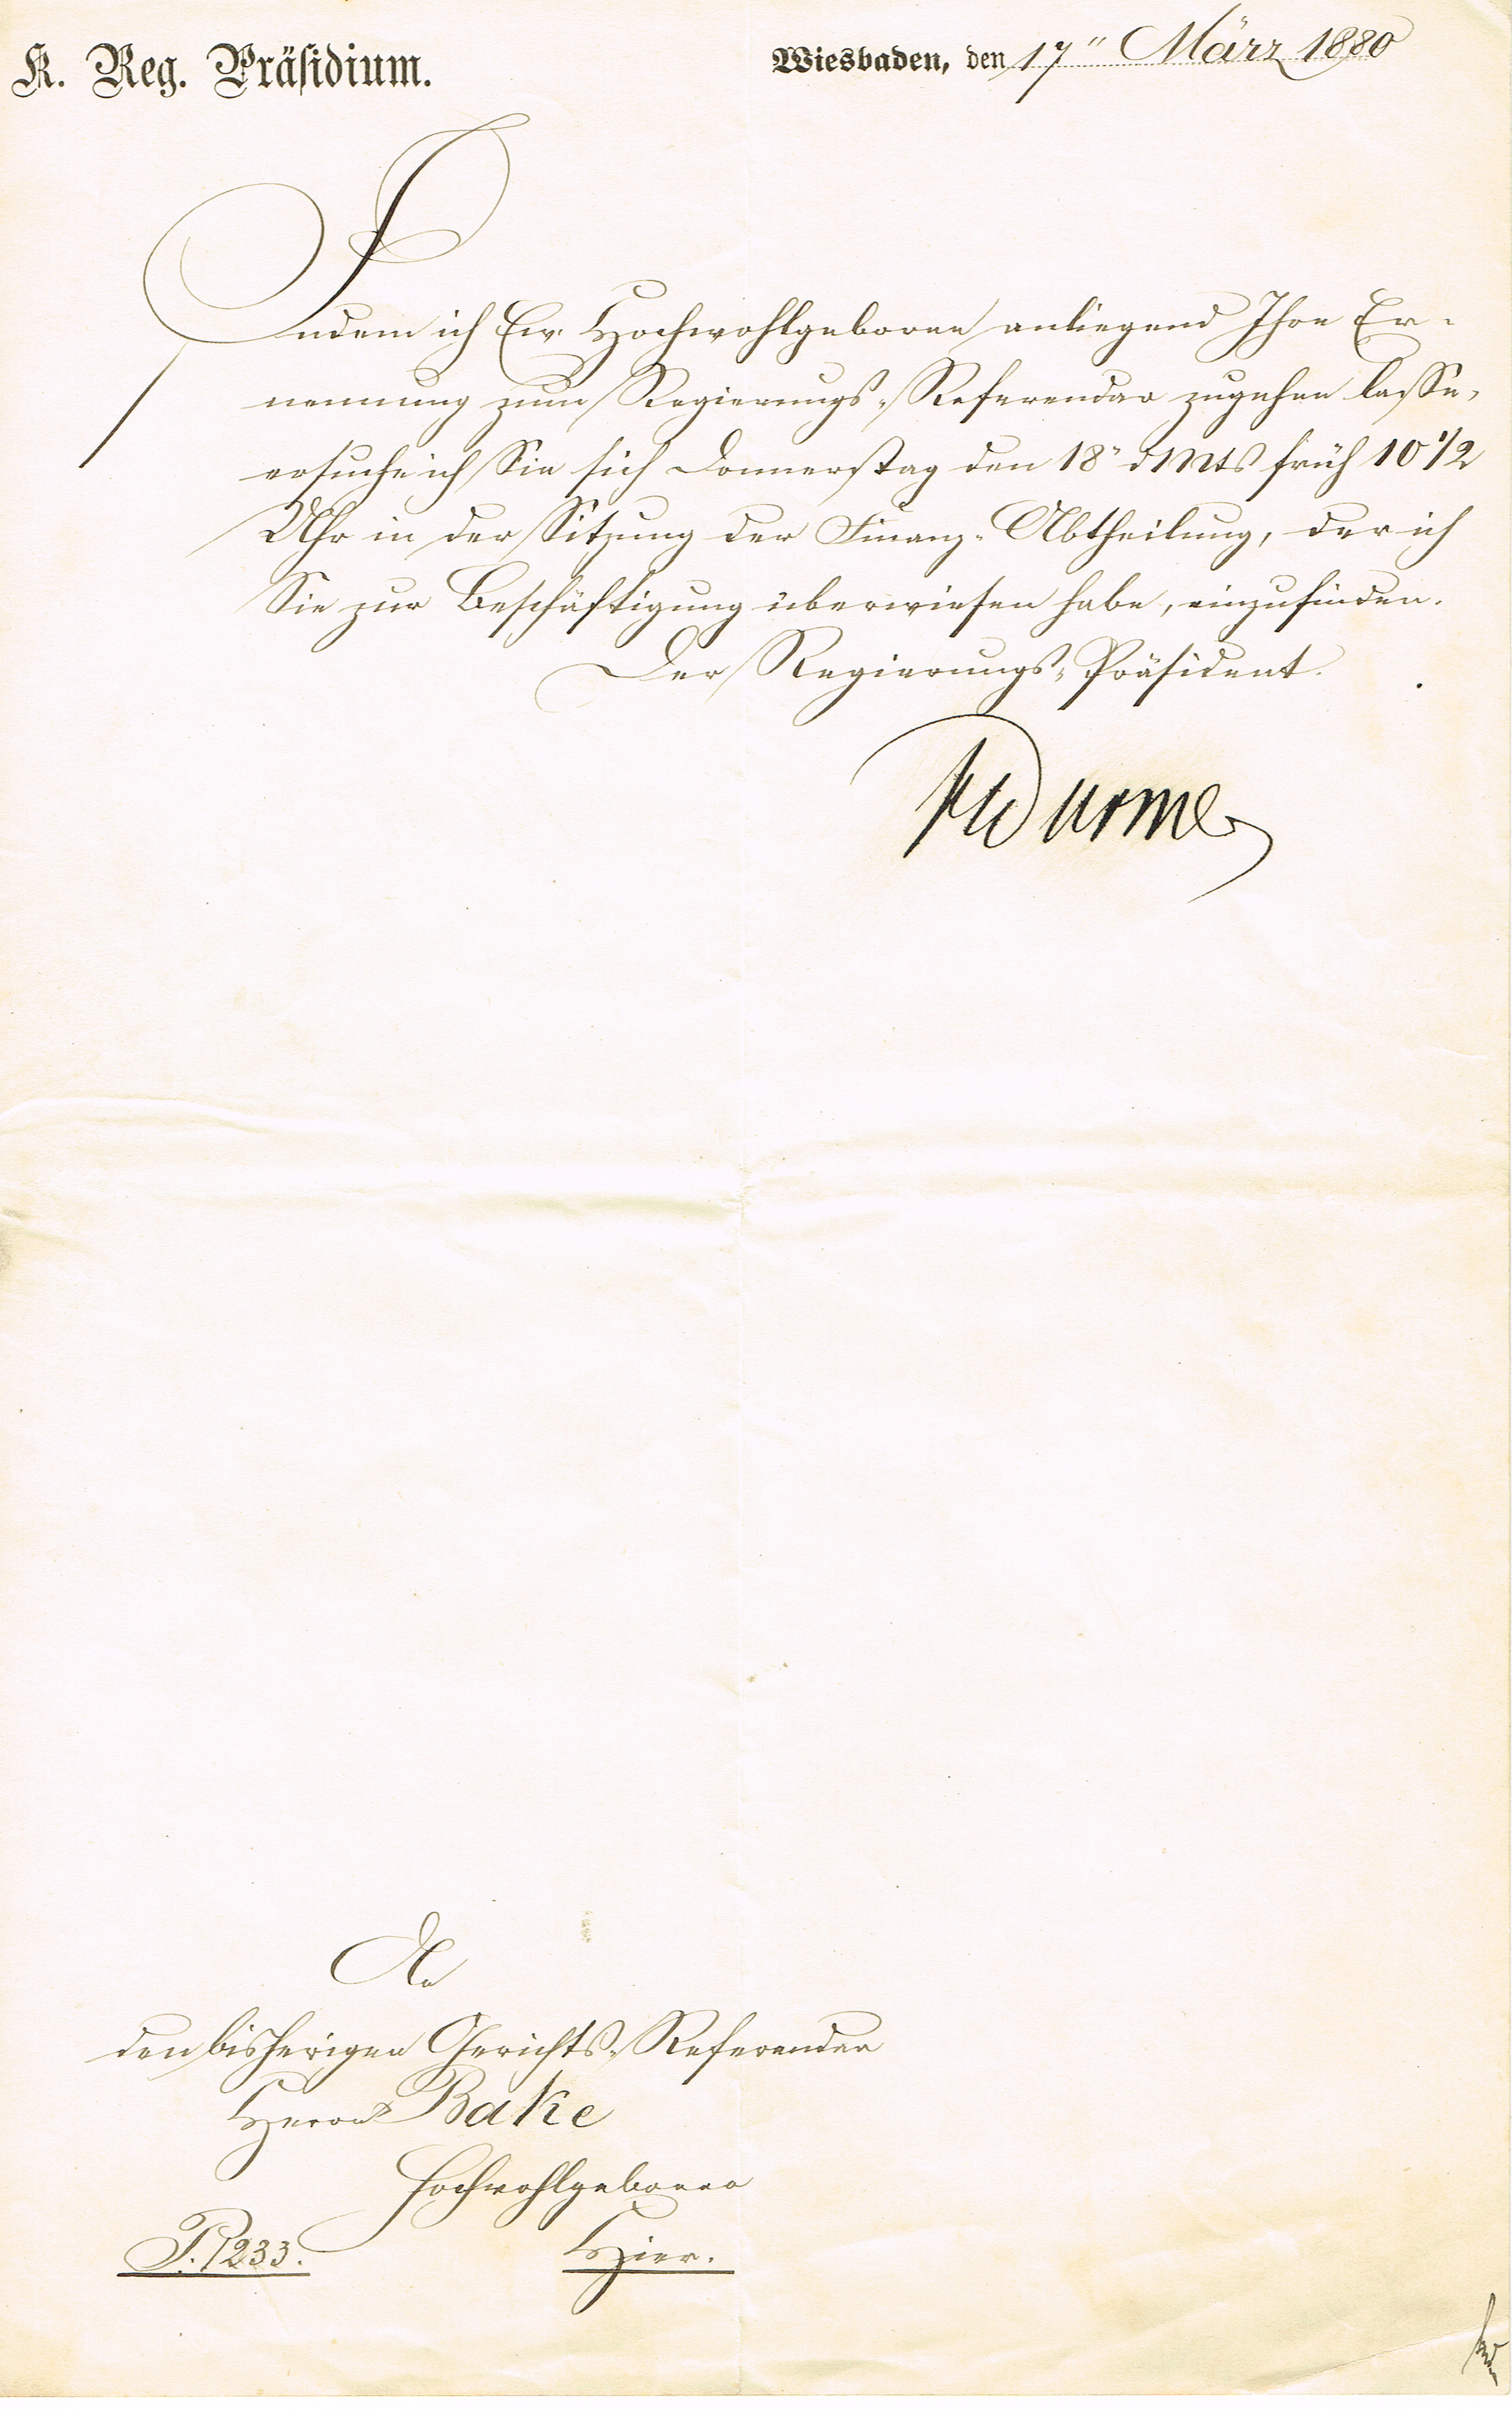 K. Reg. Präsidium.
Wiesbaden, den 17" März 1880
Indem ich Ew. Hochwohlgeboren anliegend Ihre Er-
nennung zum Regierungs-Referendar zugehen lasse,
ersuche ich Sie sich Donnerstag den 18" d Mts früh 10 1/2
Uhr in der Sitzung der Finanz-Abtheilung, der ich
Sie zur Beschäftigung überwiesen habe, einzufinden.
Der Regierungs-Präsident.
An
den bisherigen Gerichts-Referendar
Herrn Bake
Hochwohlgeboren
P. 1233.
Hier.